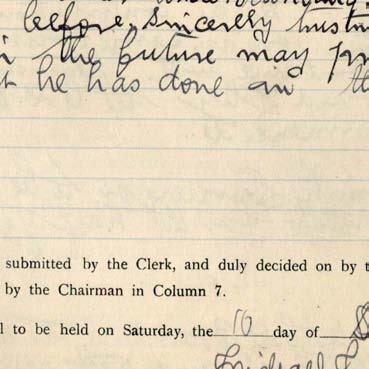 before, sincerely
the future may
he has done in
submitted by the Clerk, and duly decided on by
by the Chairman in Column 7.
to be held on Saturday, the 10 day of
Michael